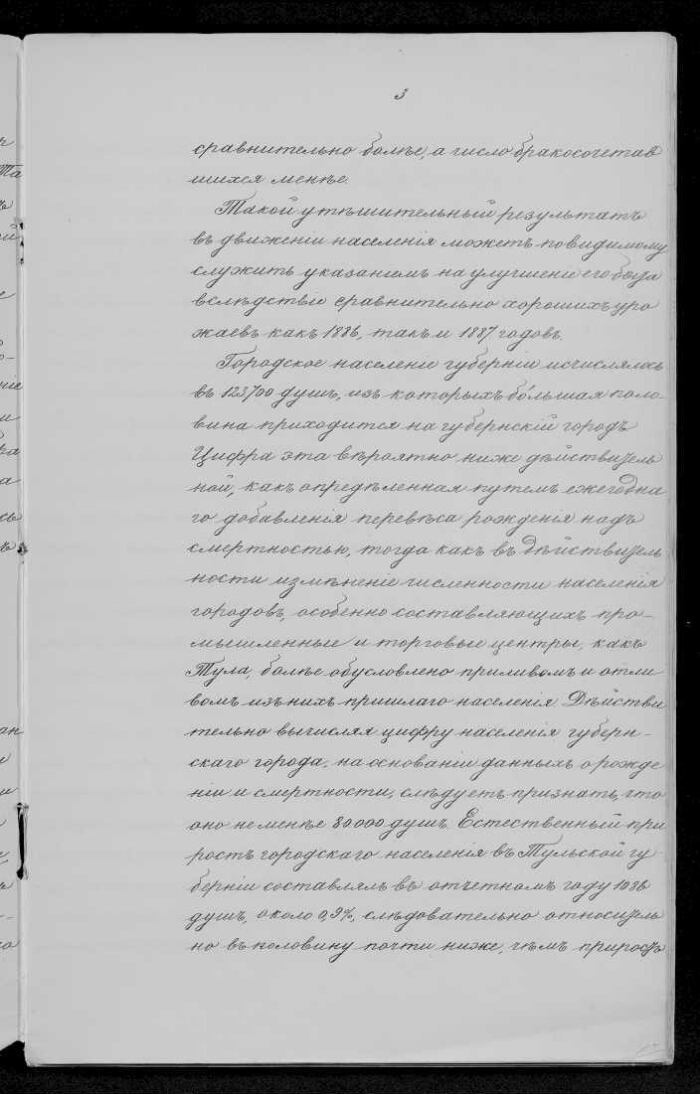 3
сравнительно болѣе, а число бракосочетав
шихся менѣе.
Такой утѣшительный результатъ
въ движеніи населенія можетъ повидимому
служить указаніемъ на улучшеніе его быта
вслѣдствіе сравнительно хорошихъ уро
жаевъ какъ 1886, такъ и 1887 годовъ.
Городское населеніе губерніи исчислялось
въ 123700 душъ, изъ которыхъ бо́льшая поло-
вина приходится на губернскій городъ
Цифра эта вѣроятно ниже дѣйствитель
ной, какъ опредѣленная путемъ ежегодна
го добавленія перевѣса рожденія надъ
смертностью, тогда какъ въ дѣйствитель
ности измѣненіе численности населенія
городовъ, особенно составляющихъ про-
мышленные и торговые центры, какъ
Тула, болѣе обусловлено приливомъ и отли
вомъ изъ нихъ пришлаго населенія Дѣйстви
тельно вычисляя цифру населенія губерн-
скаго города, на основаніи данныхъ о рожде
ніи и смертности, слѣдуетъ признать, что
оно не менѣе 80000 душъ. Естественный при
ростъ городскаго населенія въ Тульской гу
берніи составлялъ въ отчетномъ году 1036
душъ, около 0,9%, слѣдовательно относитель
но въ половину почти ниже, чѣмъ приростъ